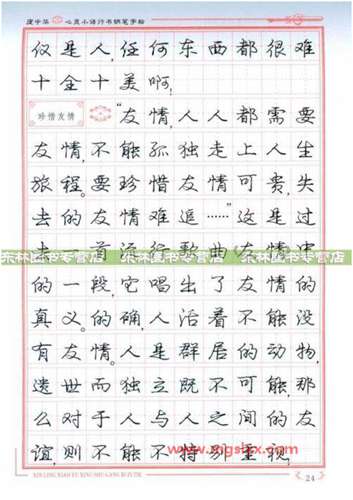 庞中华 心灵小语行书钢笔字帖
仅是人,任何东西都很难
十全十美啊!
珍惜友情 "友情,人人都需要
友情,不能孤独走上人生
旅程。要珍惜友情可贵,失
去的友情难追……"这是过
去一首流行歌曲《友情》中
东林图书专营店 东林图书专营店 东林图书专营店
的一段,它唱出了友情的
真义。的确,人活着不能没
有友情。人是群居的动物,
遗世而独立既不可能,那
么对于人与人之间的友
谊,则不能不特别重视,
XINLING XIAO YU XING SHU GANG BI ZI TIE
24